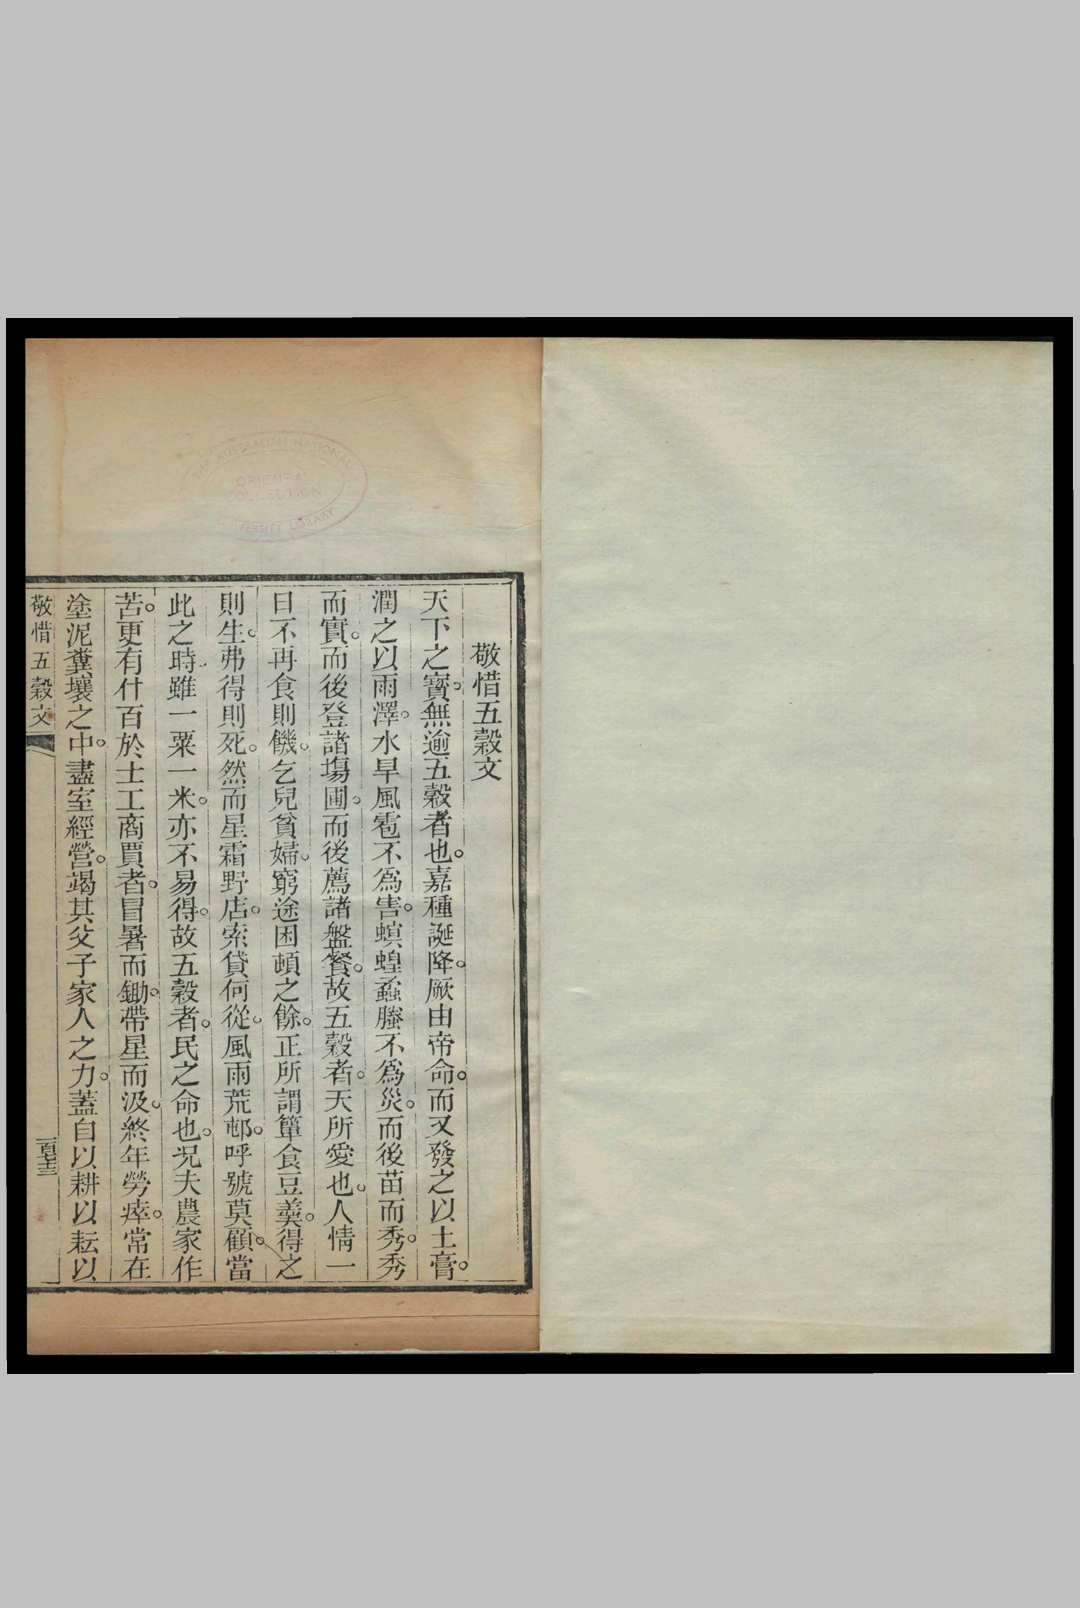 敬惜五穀文
天下之寳。無逾五穀者也。嘉種誕降。厥由帝命。而又發之以土膏。
潤之以雨澤。水旱風雹不為害。螟蝗蟊螣不為災。而後苗而秀。秀
而實。而後登諸塲圃。而後薦諸盤餐。故五穀者。天所愛也。人情一
日不再食則饑。乞兒貧婦。窮途困頓之餘。正所謂簞食豆羹。得之
則生。弗得則死。然而星霜野店。索貸何從。風雨荒邨。呼號莫顧。當
此之時。雖一粟一米。亦不易得。故五穀者。民之命也。况夫農家作
苦。更有什百於士工商賈者。冒暑而鋤。帶星而汲。終年勞瘁。常在
塗泥糞壤之中。盡室經營。竭其父子家人之力。蓋自以耕以耘以
敬惜五穀文
一百七三
THE AUSTRALIAN NATIONAL
UNIVERSITY LIBRARY
ORIENTAL
COLLECTION